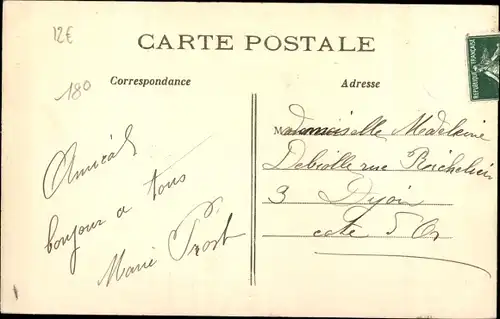 12€
180
CARTE POSTALE
Correspondance
Adresse
REPUBLIQUE FRANÇAISE
Amical
bonjour a tous
Marie Prost
Mademoiselle Madeleine
Debiolle rue Richelieu
3 Dijon
cote d'Or